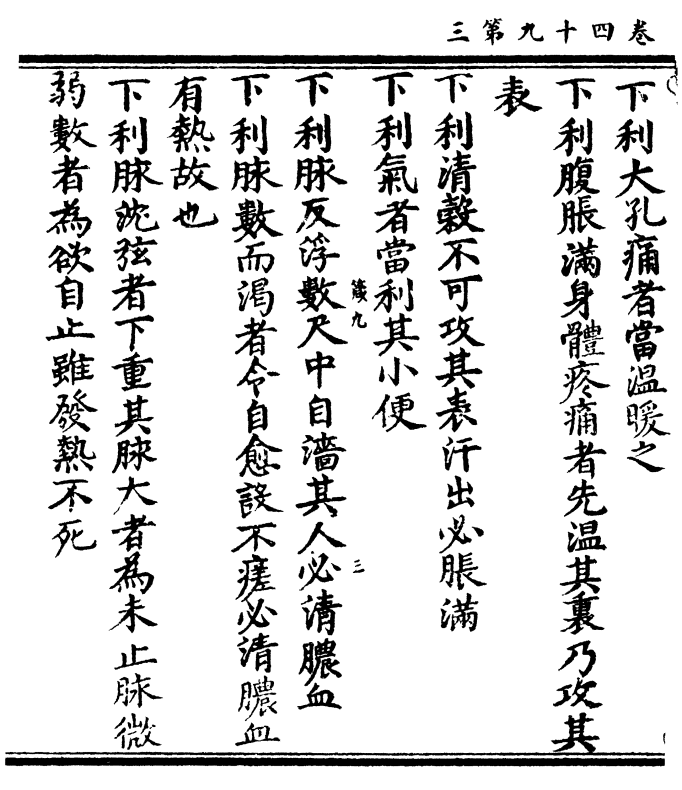 三第九十四卷
下利大孔痛者當温暖之
下利腹脹滿身體疼痛者先温其裏乃攻其
表
下利清穀不可攻其表汗出必脹滿
下利氣者當利其小便
牋九
三
下利脉反浮數尺中自濇其人必清膿血
下利脉數而渴者令自愈設不瘥必清膿血
有熱故也
下利脉沈弦者下重其脉大者為未止脉微
弱數者為欲自止雖發熱不死